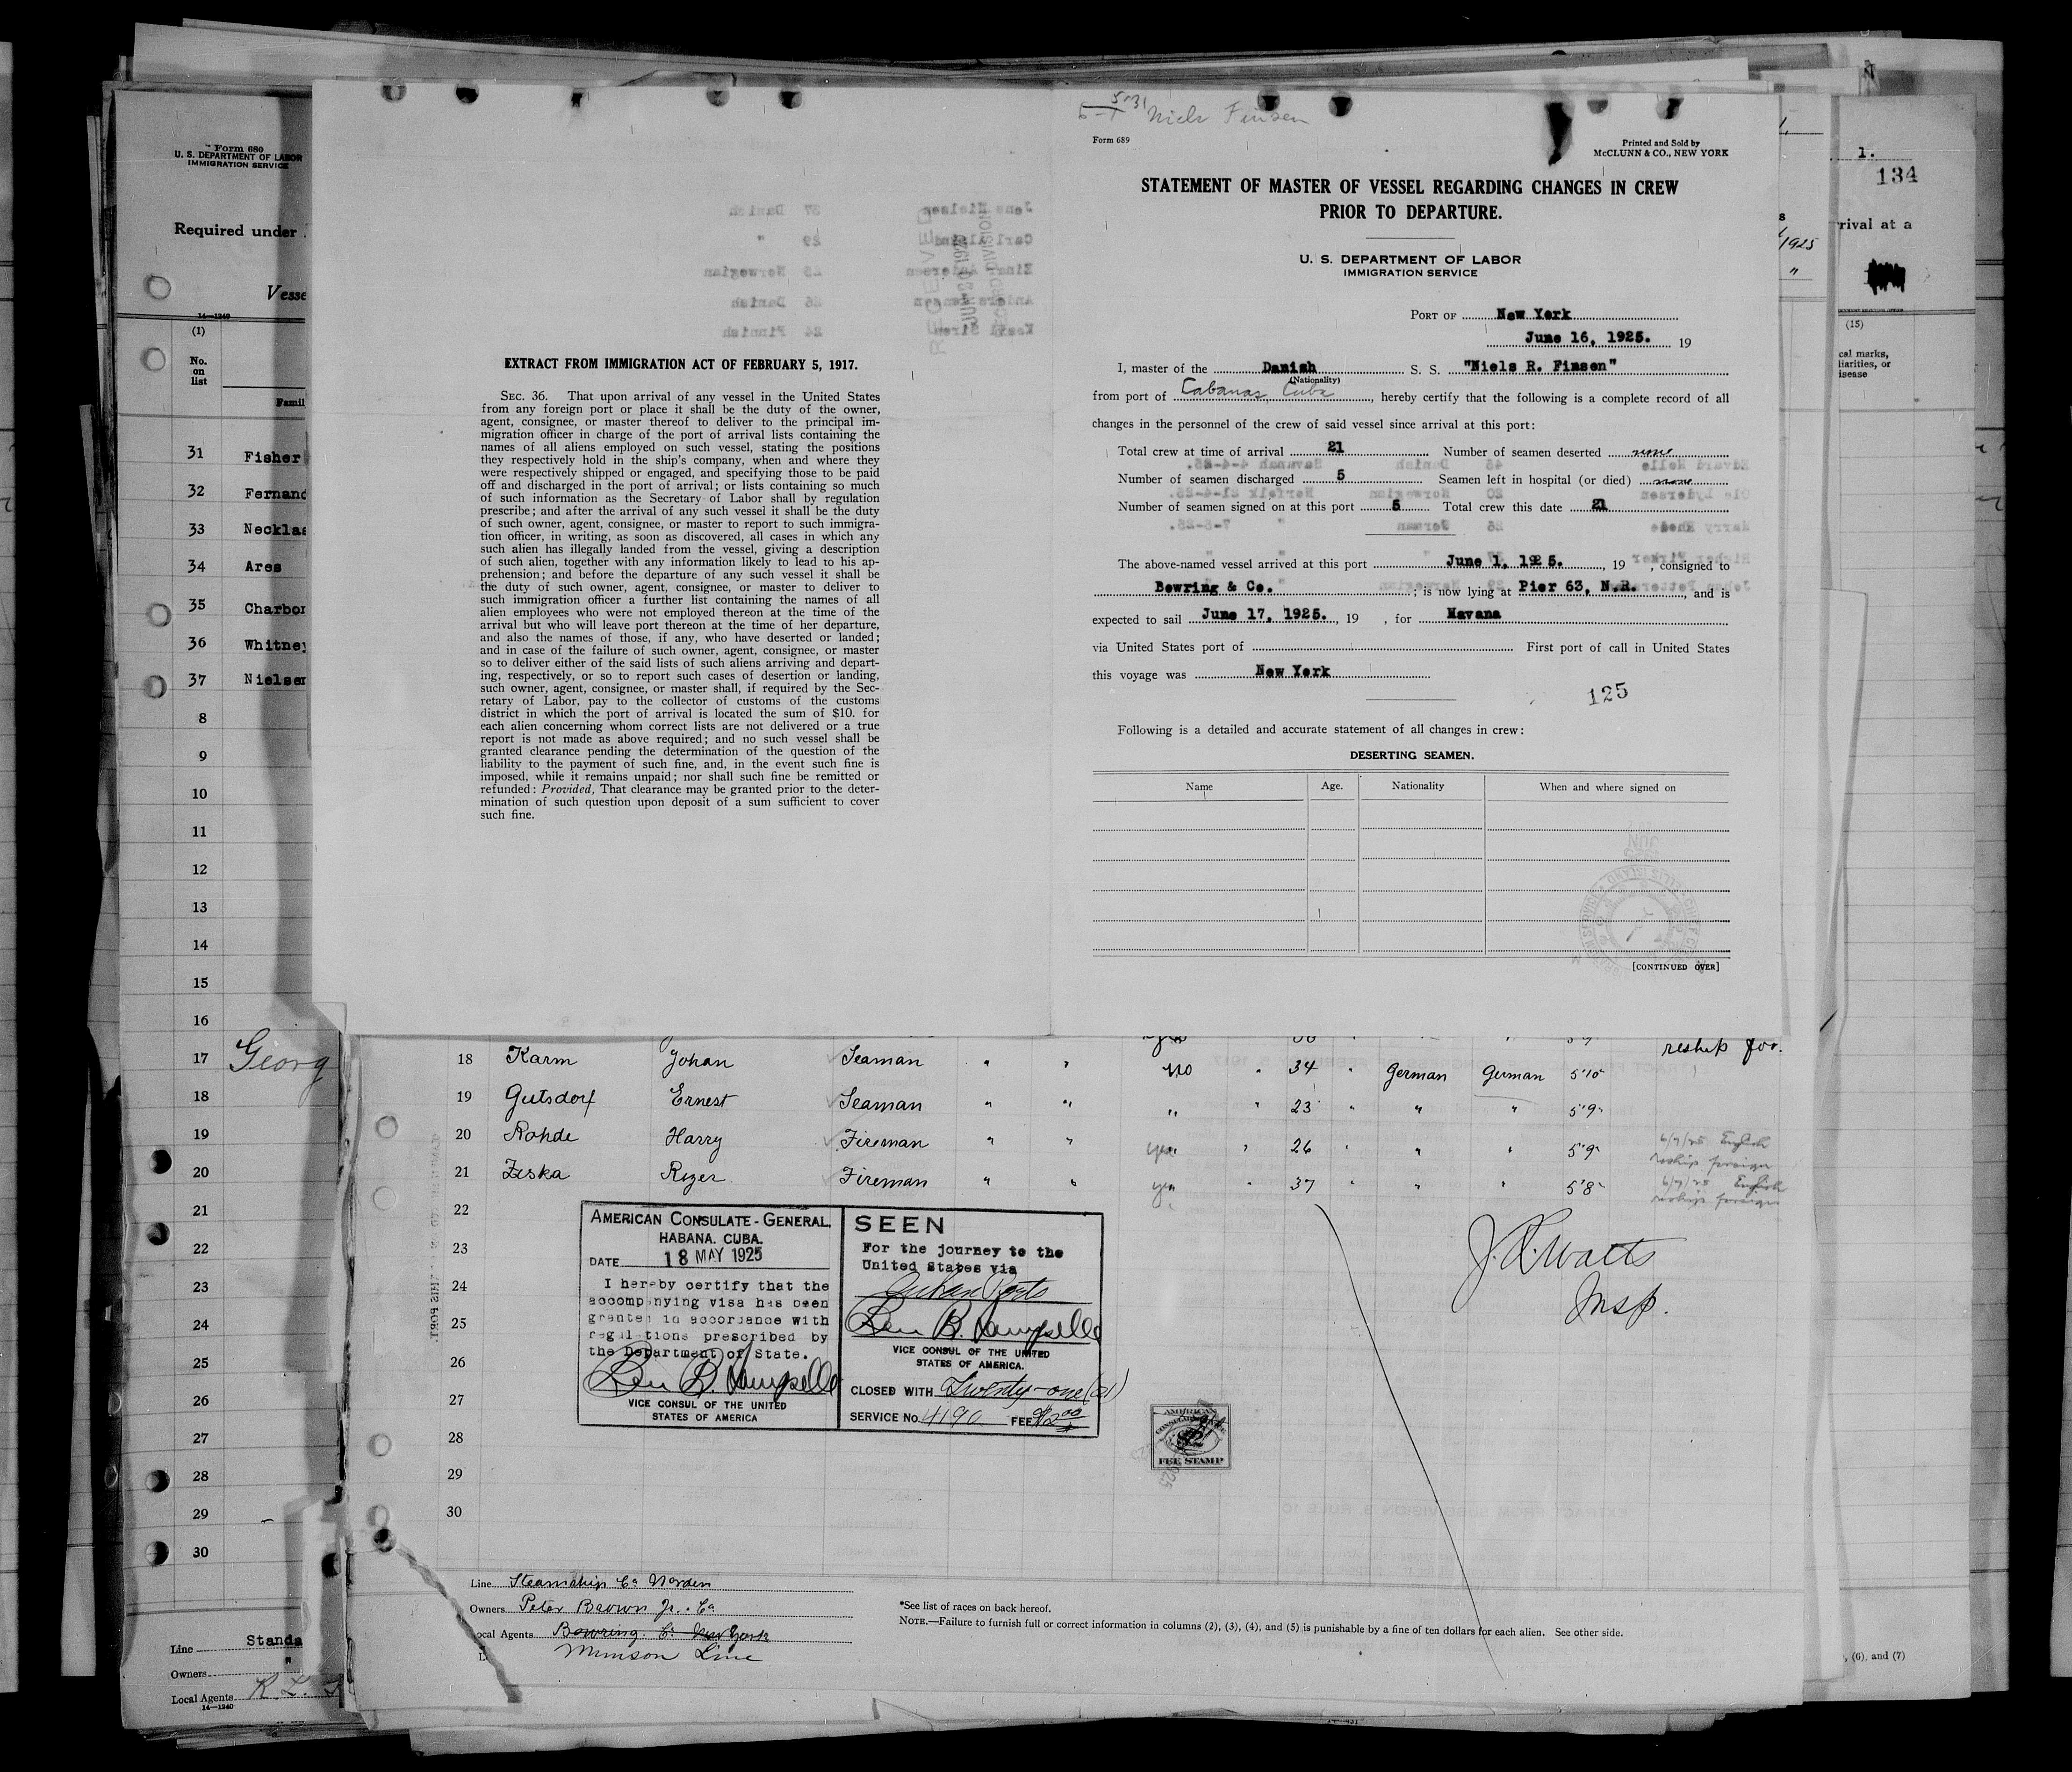 Form 680
U. S. DEPARTMENT OF LABOR
IMMIGRATION SERVICE
Required under
Vesse
14—1240
(1)
No.
on
list
Famil
31 Fisher
32 Fernand
33 Necklas
34 Ares
35 Charbor
36 Whitney
37 Nielsen
8
9
10
11
12
13
14
15
16
17 Georg
18
19
20
21
22
23
24
25
26
27
28
29
30
Line Standa
Owners "
Local Agents R. L.
14—1240
EXTRACT FROM IMMIGRATION ACT OF FEBRUARY 5, 1917.
SEC. 36. That upon arrival of any vessel in the United States
from any foreign port or place it shall be the duty of the owner,
agent, consignee, or master thereof to deliver to the principal im-
migration officer in charge of the port of arrival lists containing the
names of all aliens employed on such vessel, stating the positions
they respectively hold in the ship's company, when and where they
were respectively shipped or engaged, and specifying those to be paid
off and discharged in the port of arrival; or lists containing so much
of such information as the Secretary of Labor shall by regulation
prescribe; and after the arrival of any such vessel it shall be the duty
of such owner, agent, consignee, or master to report to such immigra-
tion officer, in writing, as soon as discovered, all cases in which any
such alien has illegally landed from the vessel, giving a description
of such alien, together with any information likely to lead to his ap-
prehension; and before the departure of any such vessel it shall be
the duty of such owner, agent, consignee, or master to deliver to
such immigration officer a further list containing the names of all
alien employees who were not employed thereon at the time of the
arrival but who will leave port thereon at the time of her departure,
and also the names of those, if any, who have deserted or landed;
and in case of the failure of such owner, agent, consignee, or master
so to deliver either of the said lists of such aliens arriving and depart-
ing, respectively, or so to report such cases of desertion or landing,
such owner, agent, consignee, or master shall, if required by the Sec-
retary of Labor, pay to the collector of customs of the customs
district in which the port of arrival is located the sum of $10. for
each alien concerning whom correct lists are not delivered or a true
report is not made as above required; and no such vessel shall be
granted clearance pending the determination of the question of the
liability to the payment of such fine, and, in the event such fine is
imposed, while it remains unpaid; nor shall such fine be remitted or
refunded: Provided, That clearance may be granted prior to the deter-
mination of such question upon deposit of a sum sufficient to cover
such fine.
Niels Finsen
Form 689
Printed and Sold by
McCLUNN & CO., NEW YORK
STATEMENT OF MASTER OF VESSEL REGARDING CHANGES IN CREW
PRIOR TO DEPARTURE.
U. S. DEPARTMENT OF LABOR
IMMIGRATION SERVICE
PORT OF New York
June 16, 1925. 19
I, master of the Danish S. S. "Niels R. Finsen"
(Nationality)
from port of Cabanas, Cuba, hereby certify that the following is a complete record of all
changes in the personnel of the crew of said vessel since arrival at this port:
Total crew at time of arrival 21 Number of seamen deserted none
Number of seamen discharged 5 Seamen left in hospital (or died) none
Number of seamen signed on at this port 5 Total crew this date 21
The above-named vessel arrived at this port June 1, 1925., 19 , consigned to
Bowring & Co. ; is now lying at Pier 63, N.R., and is
expected to sail June 17, 1925., 19 , for Havana
via United States port of First port of call in United States
this voyage was New York
125
Following is a detailed and accurate statement of all changes in crew:
DESERTING SEAMEN.
Name Age. Nationality When and where signed on
[CONTINUED OVER]
1.
134
rrival at a
1925
"
(15)
cal marks,
liarities, or
isease
, (6), and (7)
reship for.
18 Karm Johan Seaman " " No " 34 " German German 5'10"
19 Gutsdorf Ernest Seaman " " " " 23 " " " 5'9"
20 Rohde Harry Fireman " " yes " 26 " " " 5'9" 6/9/25 English
reship foreign
21 Ziska Roger Fireman " " yes " 37 " " " 5'8" 6/9/25 English
reship foreign
22
23
24
25
26
27
28
29
30
J. R. Watts
Insp.
AMERICAN CONSULATE-GENERAL,
HABANA. CUBA.
DATE 18 MAY 1925
I hereby certify that the
accompanying visa has been
granted in accordance with
regulations prescribed by
the Department of State.
VICE CONSUL OF THE UNITED
STATES OF AMERICA
SEEN
For the journey to the
United States via
Cuban Ports
VICE CONSUL OF THE UNITED
STATES OF AMERICA.
CLOSED WITH Twenty-one (21)
SERVICE No. 4190 FEE $2.00
AMERICAN
CONSULAR
$2
FEE STAMP
Line Steamship Co Norden
Owners Peter Brown Jr. Co
ocal Agents Bowring Co New York
Munson Line
*See list of races on back hereof.
NOTE.—Failure to furnish full or correct information in columns (2), (3), (4), and (5) is punishable by a fine of ten dollars for each alien. See other side.